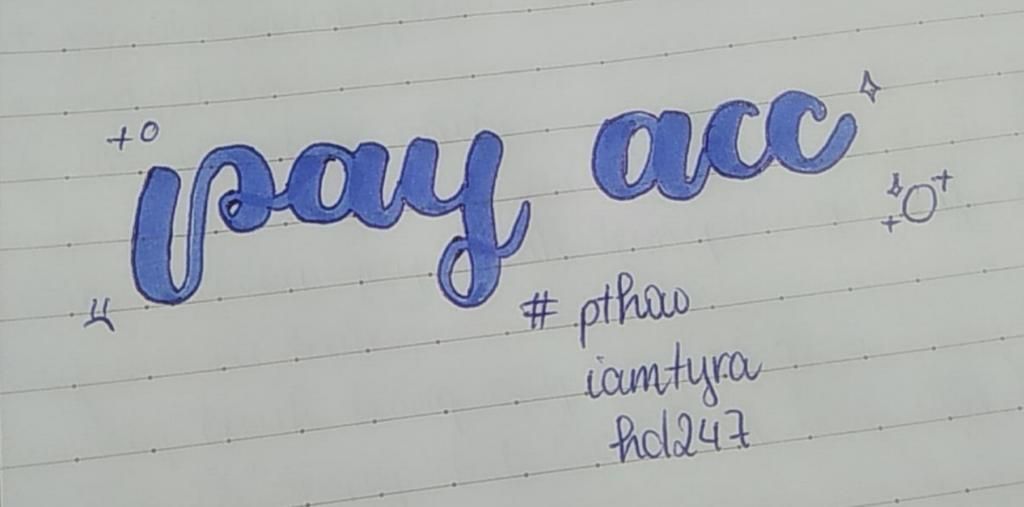 pay acc
# pthao
iamtyra
hd247